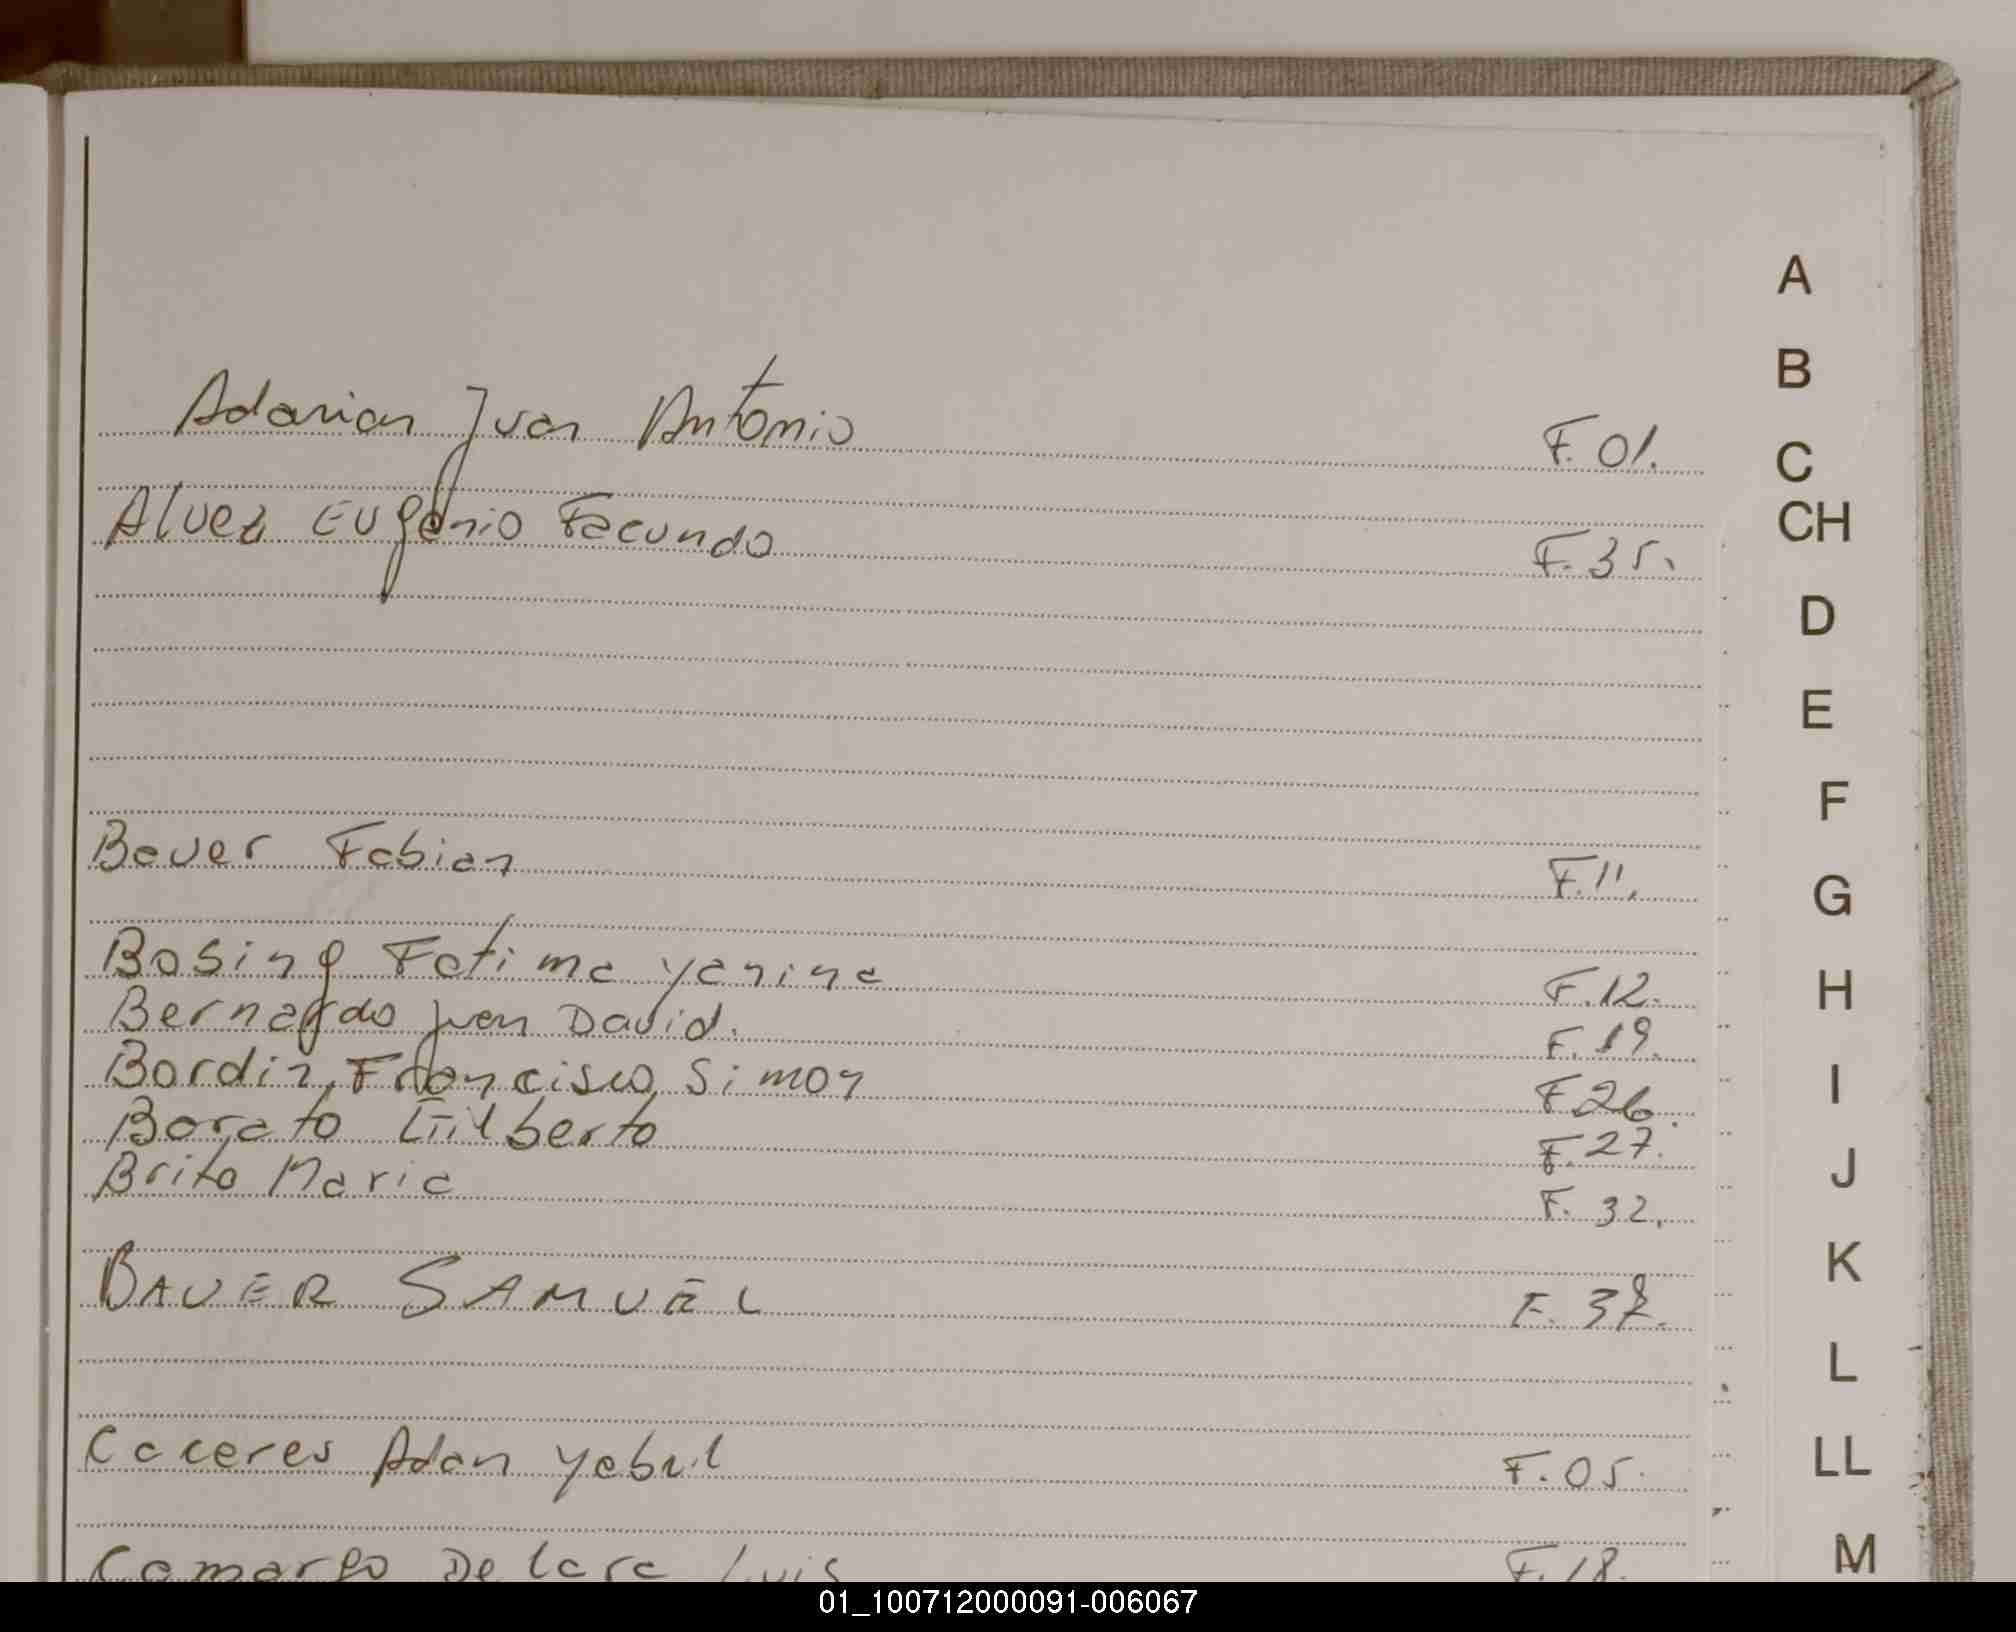 A
B
Adarian Juan Antonio F. 01.
C
CH
Alvez Eugenio Facundo F. 35.
D
E
F
Bauer Fabian F. 11.
G
Bosing Fatima Yanina F. 12.
H
Bernardo Juan David. F. 19.
Bordin, Francisco Simon F 26.
I
Borato Gilberto F. 27.
J
Brito Maria F. 32.
K
BAUER SAMUEL F. 38.
L
LL
Caceres Adan Yabul F. 05.
M
Camargo De Lara Luis F. 18.
01_100712000091-006067